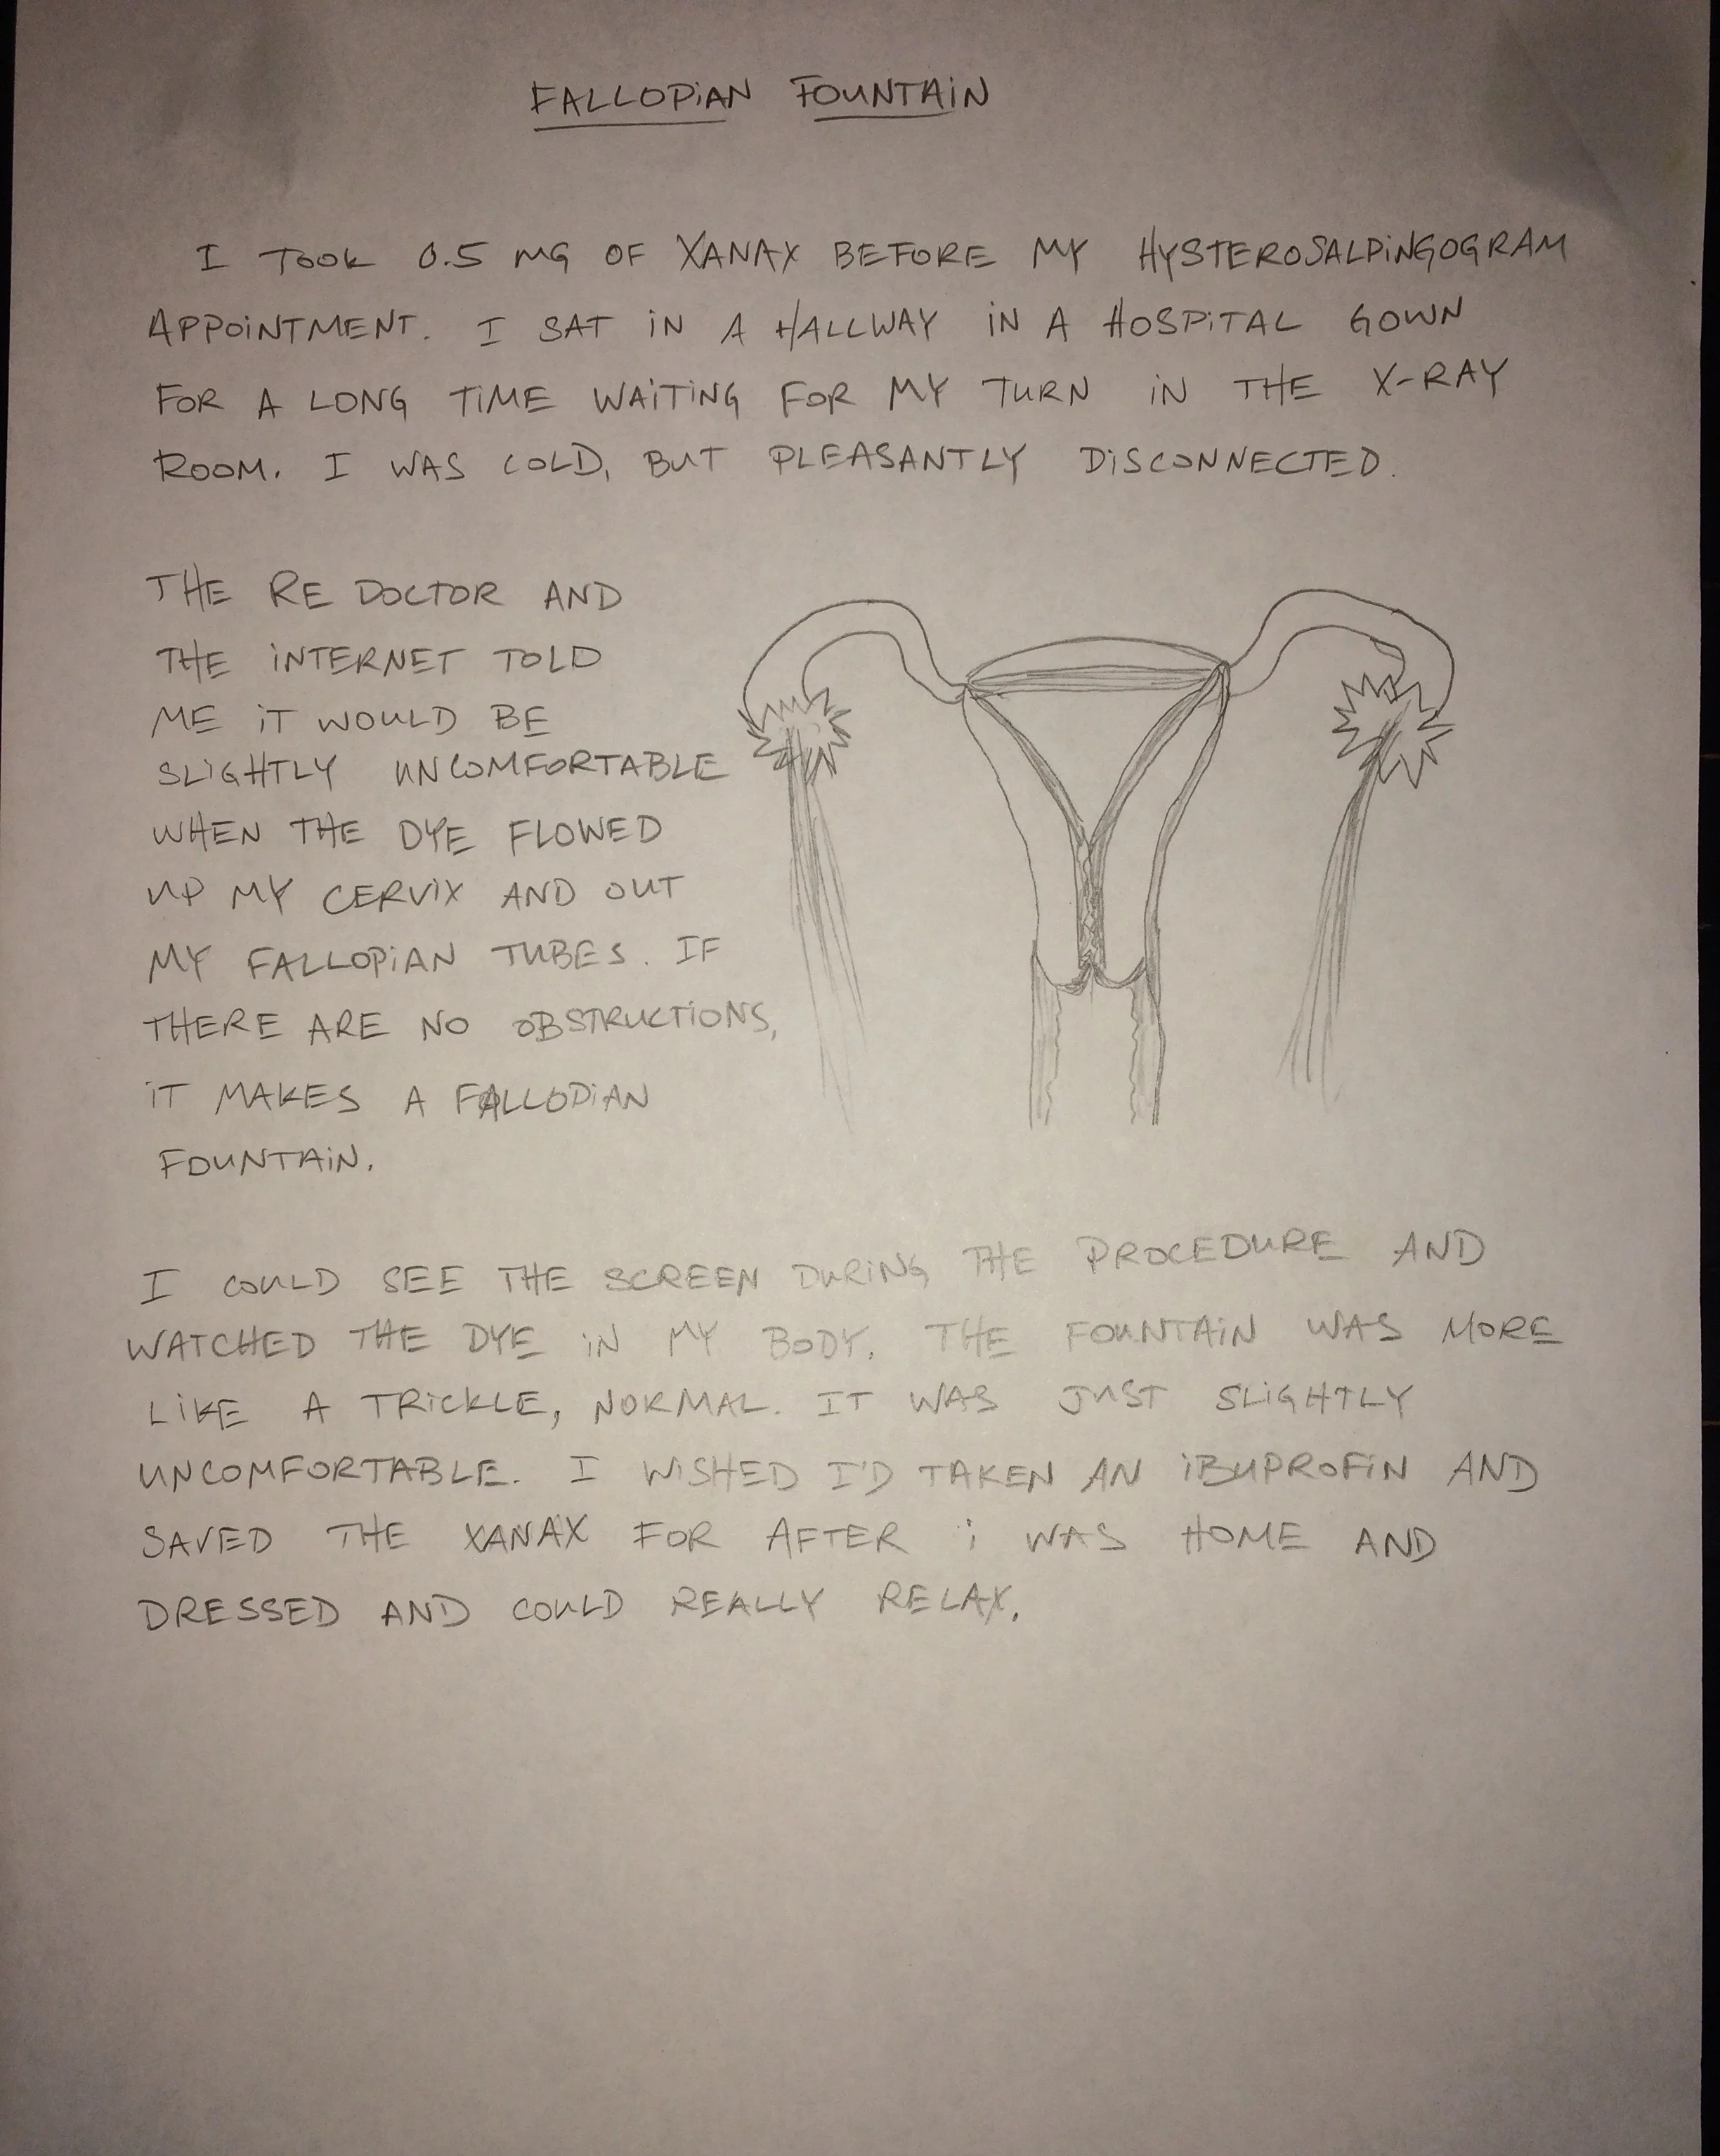 FALLOPiAN FOUNTAiN
I TOOK 0.5 MG OF XANAX BEFORE MY HYSTEROSALPiNGOGRAM
APPOiNTMENT. I SAT iN A HALLWAY iN A HOSPiTAL GOWN
FOR A LONG TiME WAiTiNG FOR MY TURN iN THE X-RAY
ROOM. I WAS COLD, BUT PLEASANTLY DiSCONNECTED.
THE RE DOCTOR AND
THE iNTERNET TOLD
ME iT WOULD BE
SLiGHTLY UNCOMFORTABLE
WHEN THE DYE FLOWED
UP MY CERViX AND OUT
MY FALLOPiAN TUBES. IF
THERE ARE NO OBSTRUCTiONS,
iT MAKES A FALLOPiAN
FOUNTAiN.
I COULD SEE THE SCREEN DURiNG THE PROCEDURE AND
WATCHED THE DYE iN MY BODY. THE FOUNTAiN WAS MORE
LiKE A TRiCKLE, NORMAL. IT WAS JUST SLiGHTLY
UNCOMFORTABLE. I WiSHED I'D TAKEN AN iBUPROFiN AND
SAVED THE XANAX FOR AFTER i WAS HOME AND
DRESSED AND COULD REALLY RELAX.